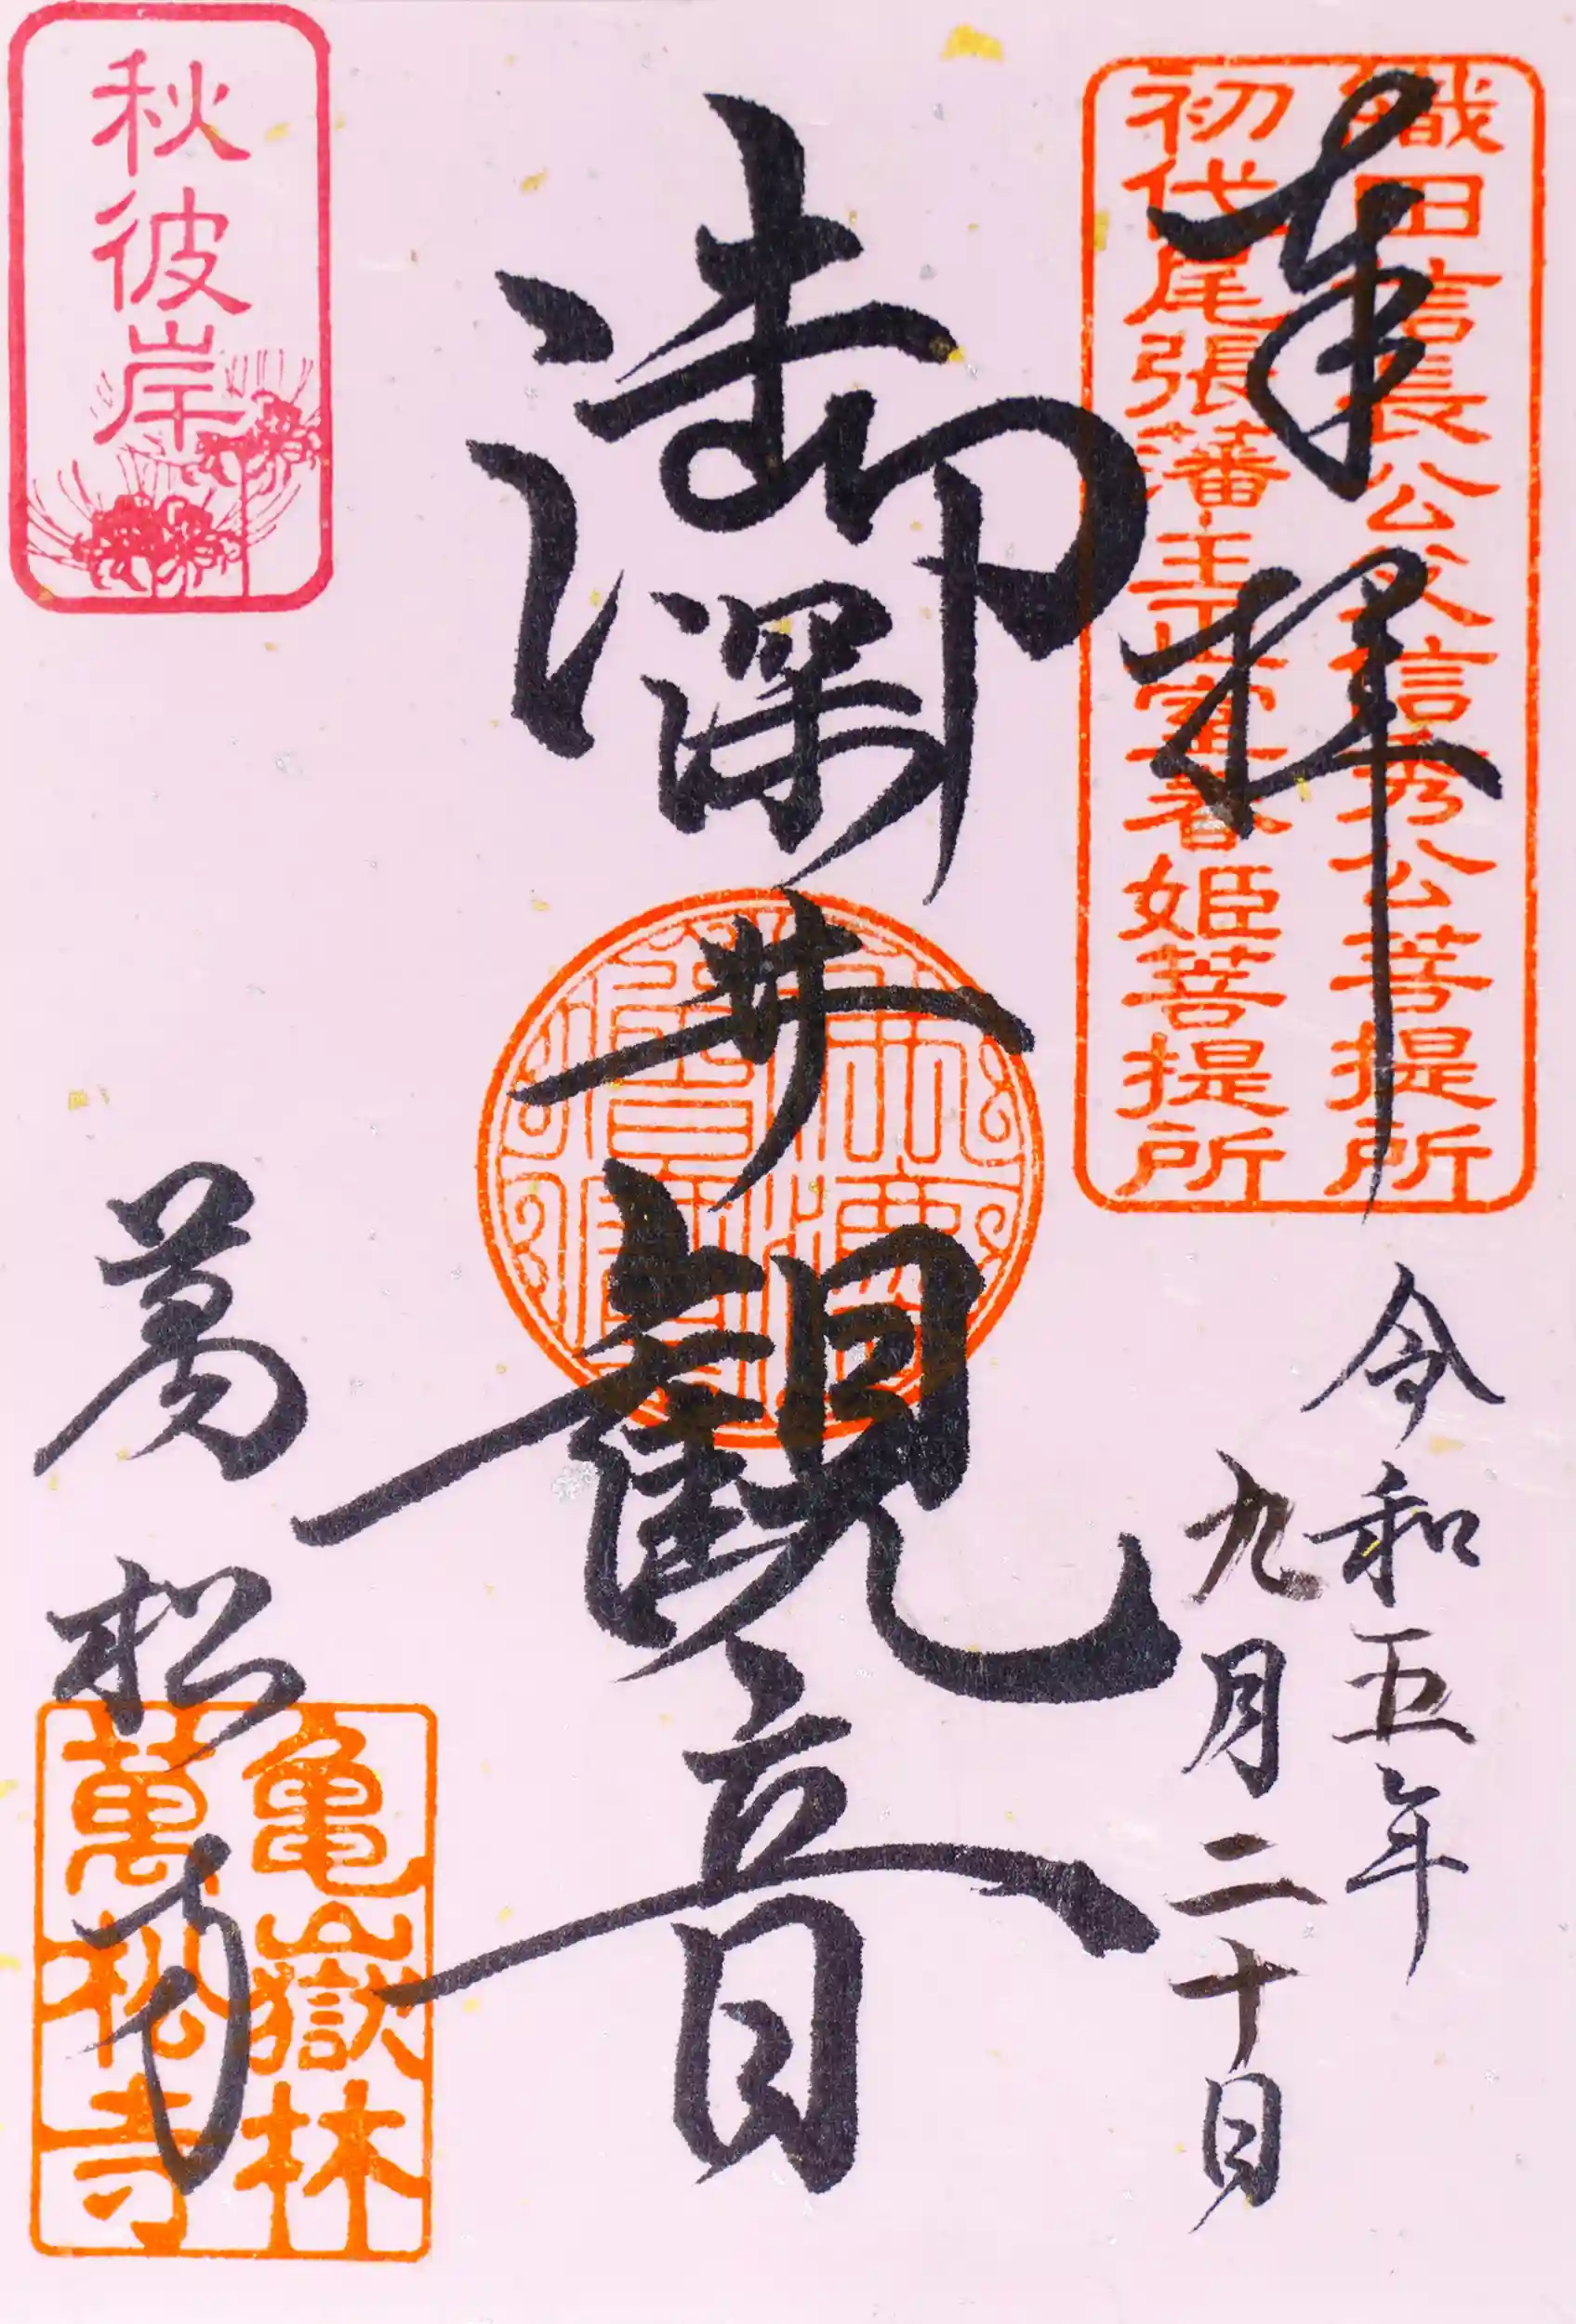 織田信長公父信秀公菩提所
初代尾張藩主正室春姫菩提所
奉拝
令和五年
九月二十日
御深井観音
秋彼岸
萬松寺
亀嶽林
萬松寺